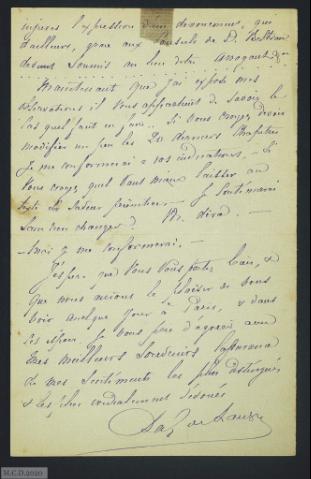 injures l'expression d'un dévouement, qui
d'ailleurs, grâce aux conseils de D.
devant soumis au lieu d'être arrogant &a
Maintenant que j'ai exposé mes
observations il vous appartient de savoir le
cas qu'il faut en faire. Si vous croyez devoir
modifier un peu les dernières
je me conformerai à vos indications. — Si
vous croyez qu'il vaut mieux laisser au
texte sa
sans rien changer?
— Ainsi je me conformerai. —
J'espère que vous vous portez bien, &
que nous aurons le plaisir de vous
voir quelque jour à Paris, & dans
cet espoir je vous prie d'agréer avec
mes meilleurs souvenirs l'assurance
de mes sentiments les plus distingués
& les plus cordialement dévoués
M.C.D. 2020